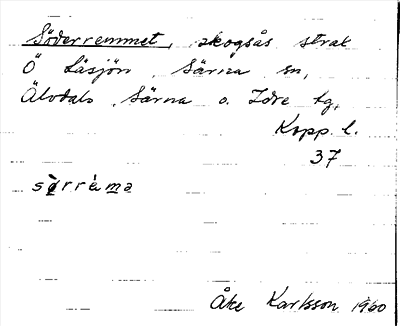 Söderremmet, skogsås strax
Ö Läsjön, Särna sn,
Älvdals, Särna o. Idre tg,
Kopp. l.
37
sọ̀rrèma
Åke Karlsson 1960